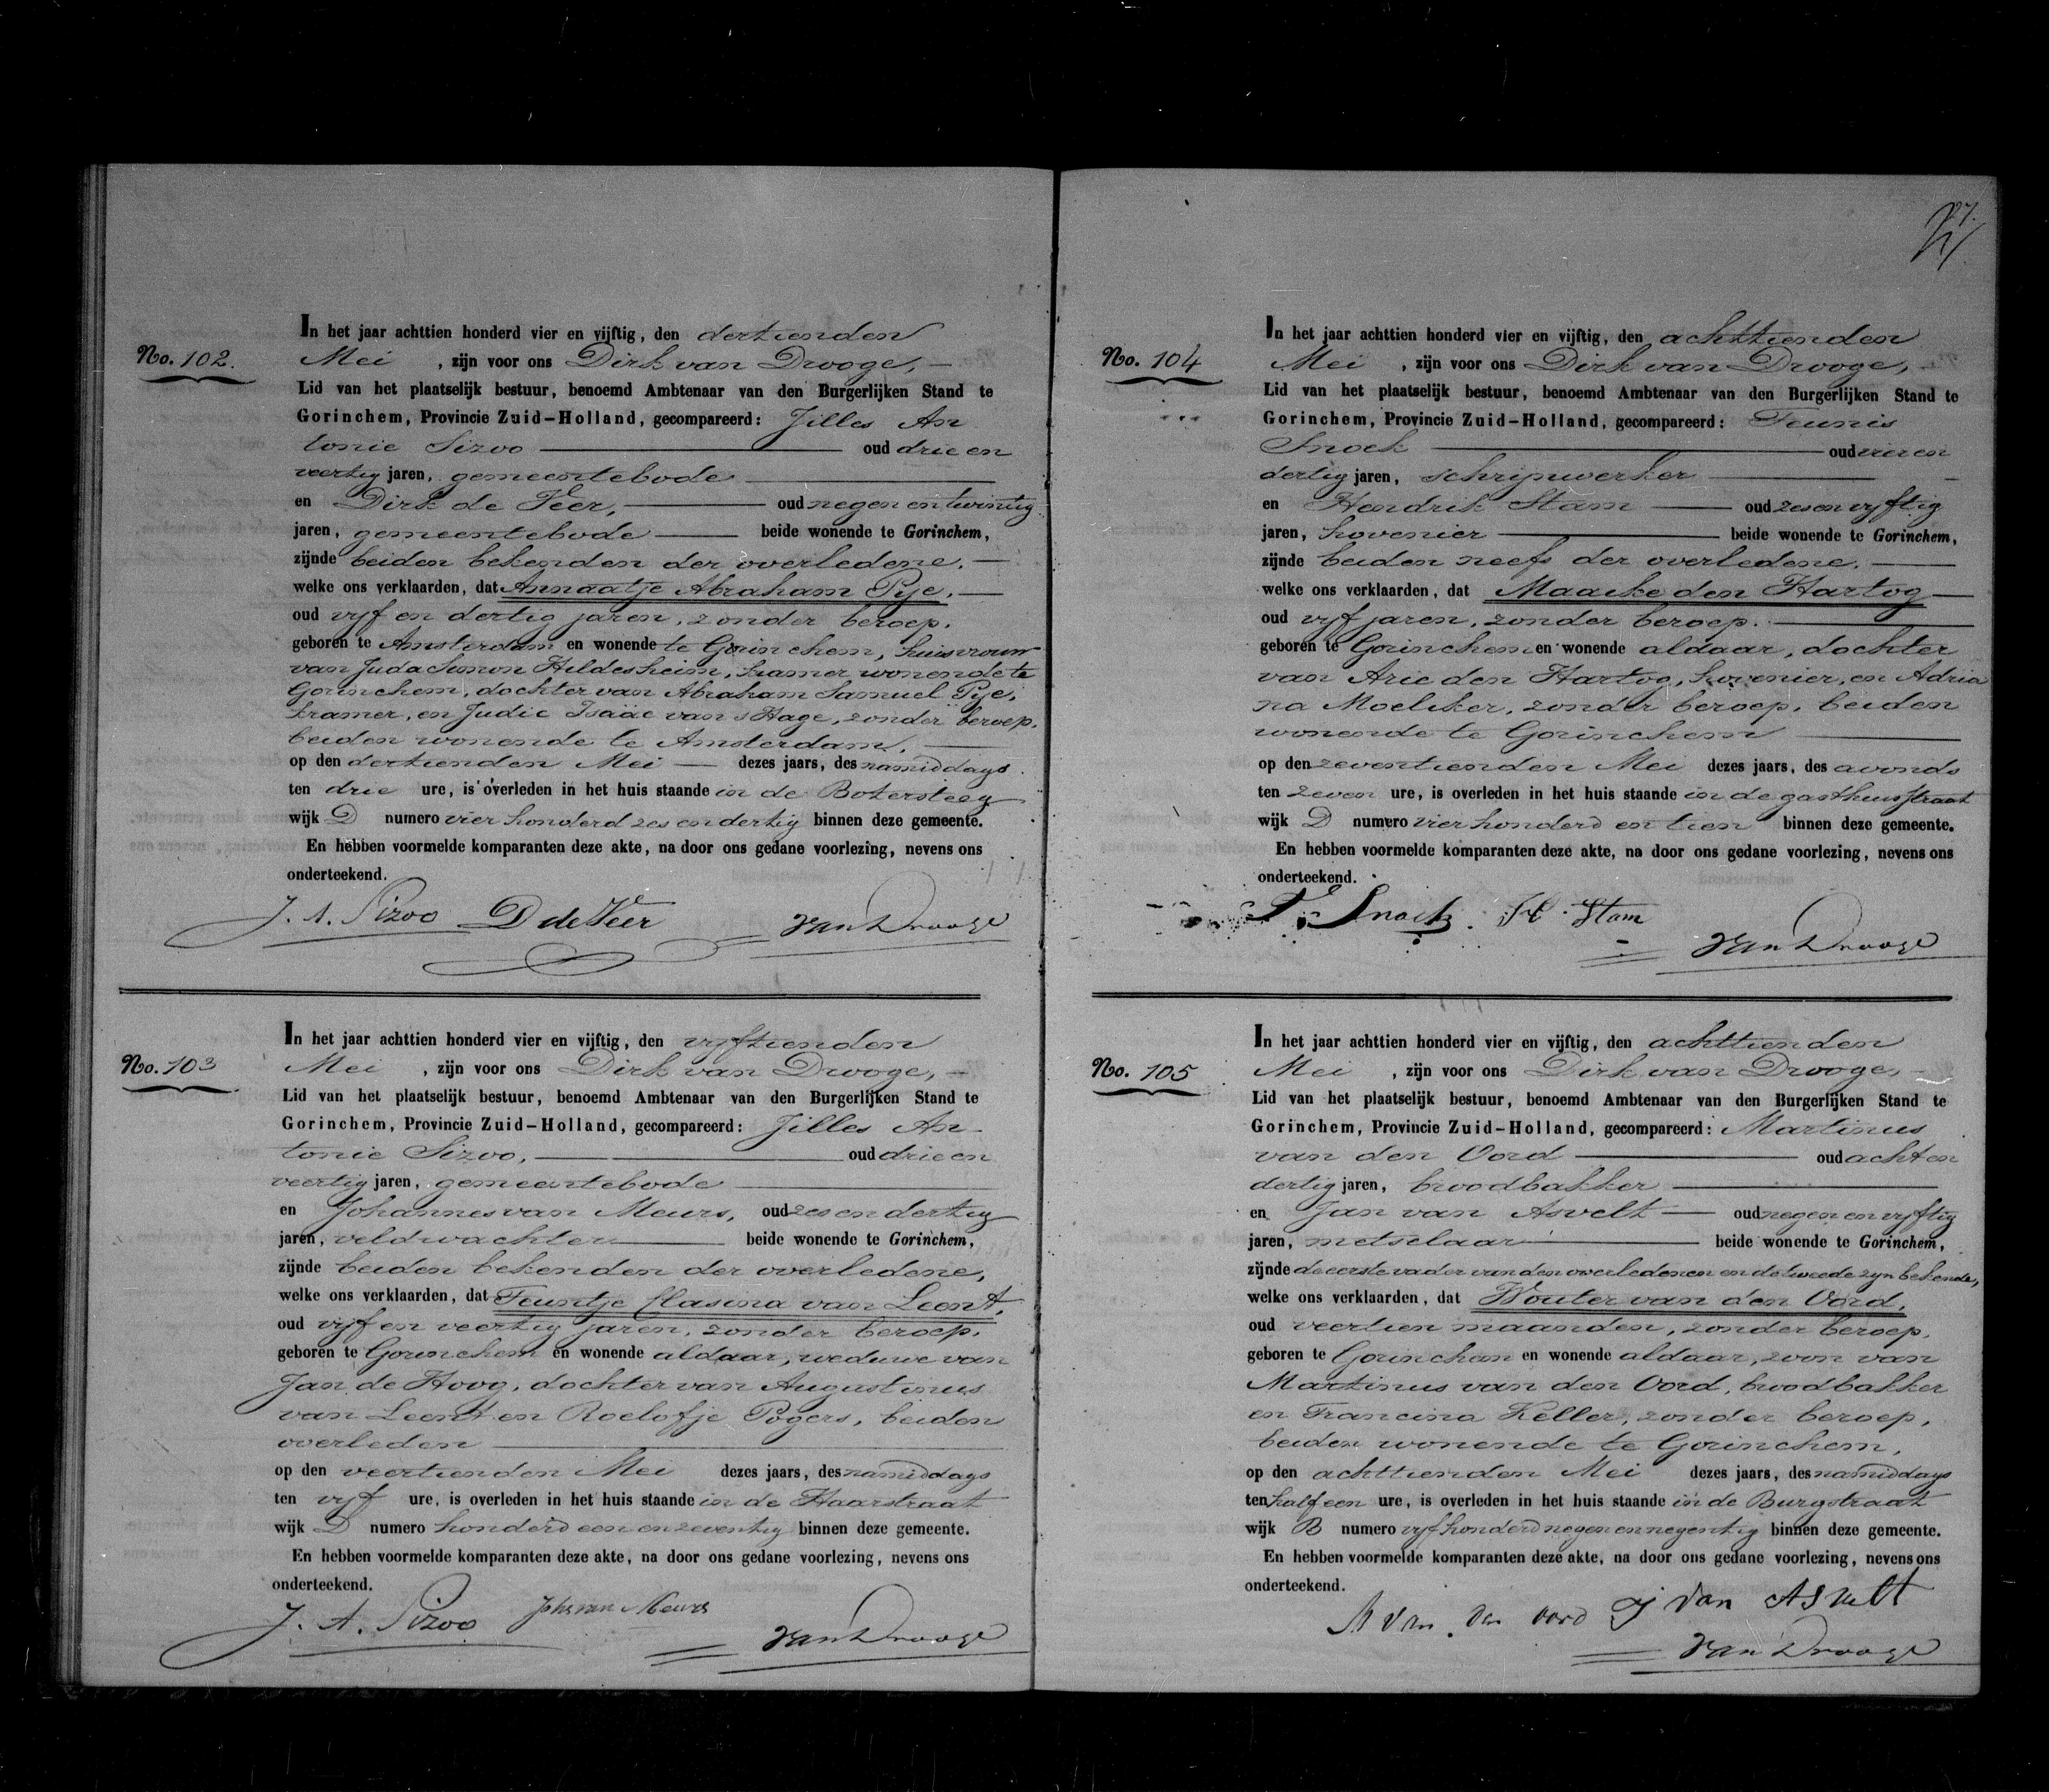 No. 102.
In het jaar achttien honderd vier en vijftig, den dertienden
Mei , zijn voor ons Dirk van Drooge,
Lid van het plaatselijk bestuur, benoemd Ambtenaar van den Burgerlijken Stand te
Gorinchem, Provincie Zuid-Holland, gecompareerd: Jilles An
tonie Sizoo oud drie en
veertig jaren, gemeentebode
en Dirk de Veer, oud negen en twintig
jaren, gemeentebode beide wonende te Gorinchem,
zijnde beiden bekenden der overledene.
welke ons verklaarden, dat Annaatje Abraham Pije,
oud vijf en dertig jaren, zonder beroep.
geboren te Amsterdam en wonende te Gorinchem, huisvrouw
van Juda Simon Hildesheim, kramer wonende te
Gorinchem, dochter van Abraham Samuel Pije,
kramer, en Judic Isaäc van s Hage, zonder beroep,
beiden wonende te Amsterdam.
op den dertienden Mei dezes jaars, des namiddags
ten drie ure, is overleden in het huis staande in de Botersteeg
wijk D numero vier honderd zes en dertig binnen deze gemeente.
En hebben voormelde komparanten deze akte, na door ons gedane voorlezing, nevens ons
onderteekend.
J. A. Sizoo D de Veer van Drooge
No. 103
In het jaar achttien honderd vier en vijftig, den vijftienden
Mei , zijn voor ons Dirk van Drooge,
Lid van het plaatselijk bestuur, benoemd Ambtenaar van den Burgerlijken Stand te
Gorinchem, Provincie Zuid-Holland, gecompareerd: Jilles An
tonie Sizoo, oud drie en
veertig jaren, gemeentebode
en Johannes van Meurs, oud zes en dertig
jaren, veldwachter beide wonende te Gorinchem,
zijnde beiden bekenden der overledene,
welke ons verklaarden, dat Teuntje Clasina van Leent,
oud vijf en veertig jaren, zonder beroep.
geboren te Gorinchem en wonende aldaar, weduwe van
Jan de Hoog, dochter van Augustinus
van Leent en Roelofje Pogers, beiden
overleden
op den veertienden Mei dezes jaars, des namiddags
ten vijf ure, is overleden in het huis staande in de Haarstraat
wijk D numero honderd een en zeventig binnen deze gemeente.
En hebben voormelde komparanten deze akte, na door ons gedane voorlezing, nevens ons
onderteekend.
J. A. Sizoo Johs van Meurs van Drooge
27.
No. 104
In het jaar achttien honderd vier en vijftig, den achttienden
Mei , zijn voor ons Dirk van Drooge,
Lid van het plaatselijk bestuur, benoemd Ambtenaar van den Burgerlijken Stand te
Gorinchem, Provincie Zuid-Holland, gecompareerd: Teunis
Snoek oud vier en
dertig jaren, schrijnwerker
en Hendrik Stam oud zes en vyftig
jaren, hovenier beide wonende te Gorinchem,
zijnde beiden neefs der overledene.
welke ons verklaarden, dat Maaike den Hartog
oud vyf jaren, zonder beroep.
geboren te Gorinchem en wonende aldaar, dochter
van Arie den Hartog, hovenier, en Adria
na Moeliker, zonder beroep, beiden
wonende te Gorinchem
op den zeventienden Mei dezes jaars, des avonds
ten zeven ure, is overleden in het huis staande in de gasthuisstraat
wijk D numero vier honderd en tien binnen deze gemeente.
En hebben voormelde komparanten deze akte, na door ons gedane voorlezing, nevens ons
onderteekend.
T. Snoek. H. Stam
van Drooge
No. 105
In het jaar achttien honderd vier en vijftig, den achttienden
Mei , zijn voor ons Dirk van Drooge,
Lid van het plaatselijk bestuur, benoemd Ambtenaar van den Burgerlijken Stand te
Gorinchem, Provincie Zuid-Holland, gecompareerd: Martinus
van den Oord oud acht en
dertig jaren, broodbakker
en Jan van Asvelt oud negen en vyftig
jaren, metselaar beide wonende te Gorinchem,
zijnde de eerste vader van den overledenen en de tweede zyn bekende,
welke ons verklaarden, dat Wouter van den Oord,
oud veertien maanden, zonder beroep,
geboren te Gorinchem en wonende aldaar, zoon van
Martinus van den Oord, broodbakker
en Francina Keller, zonder beroep,
beiden wonende te Gorinchem,
op den achttienden Mei dezes jaars, des namiddags
ten half een ure, is overleden in het huis staande in de Burgstraat
wijk B numero vyf honderd negen en negentig binnen deze gemeente.
En hebben voormelde komparanten deze akte, na door ons gedane voorlezing, nevens ons
onderteekend.
M van den oord J van Asvelt
van Drooge